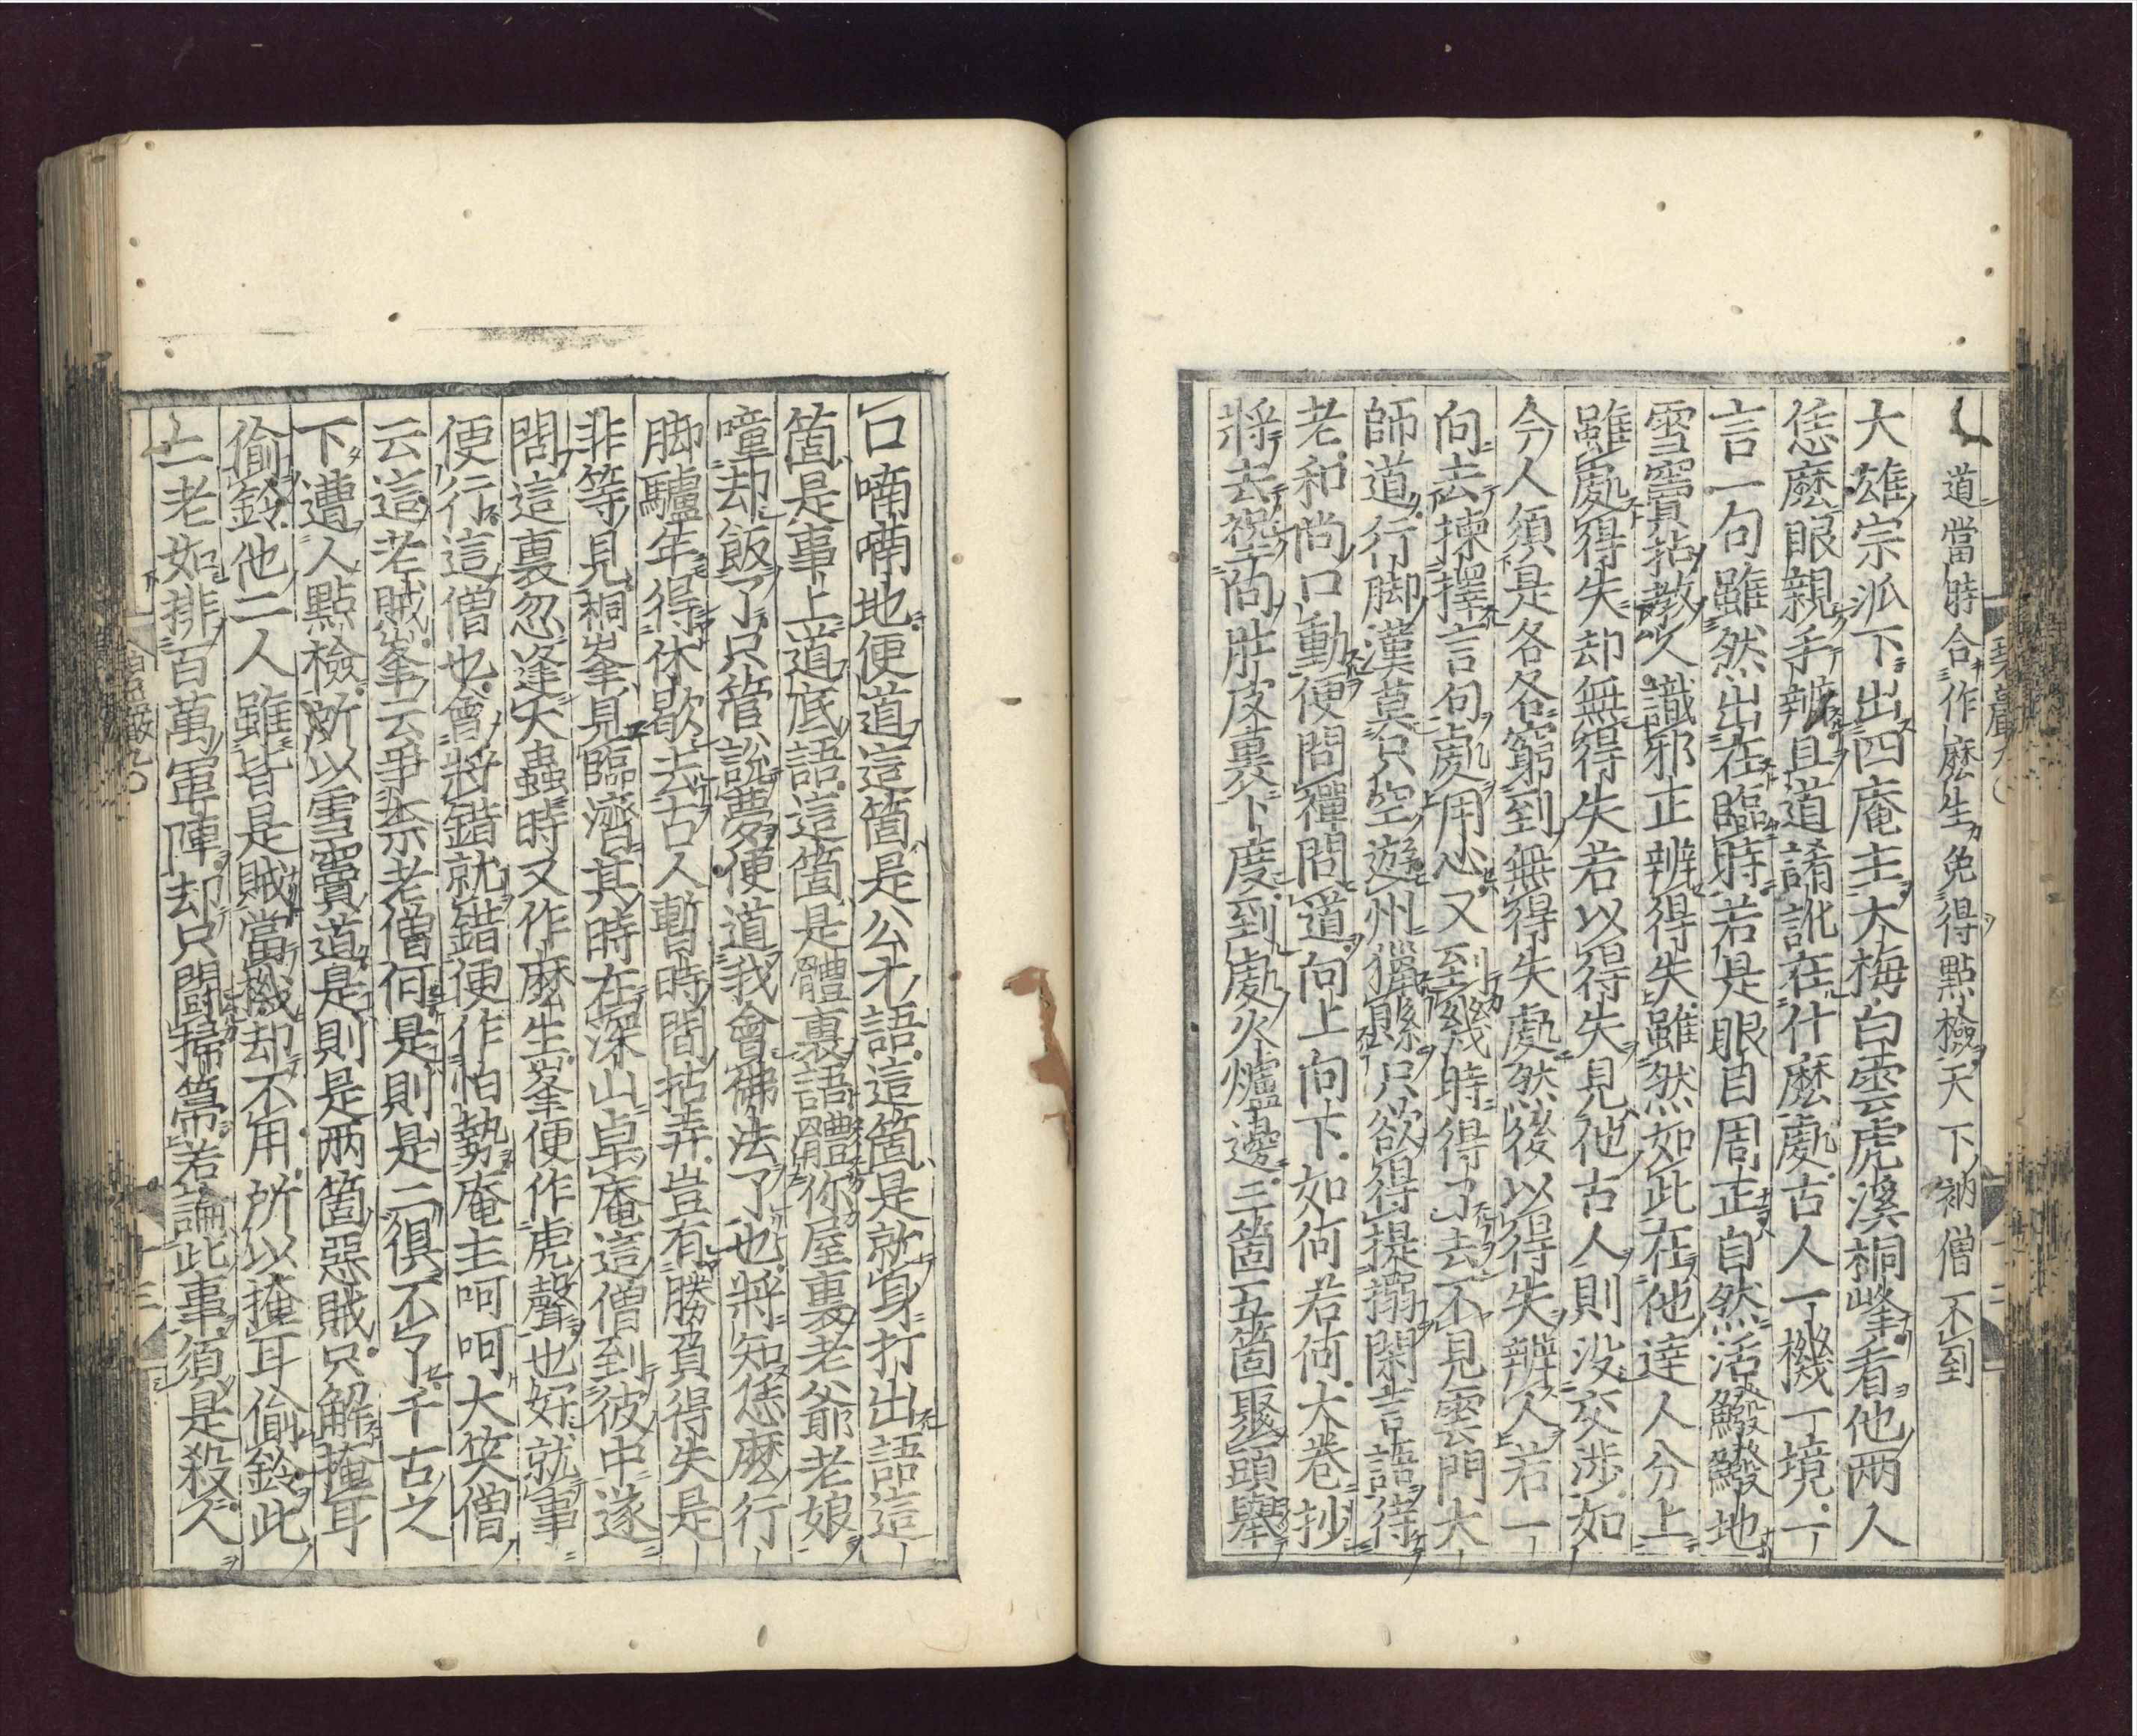 道當時合作麽生免得點檢天下衲僧不到
大雄宗派下出四庵主大梅白雲虎溪桐峰看他兩人
恁麽眼親手辨且道誵訛在什麽處古人一機一境一
言一句雖然出在臨時若是眼目周正自然活鱍鱍地
雪竇拈教人識邪正辨得失雖然如此在他達人分上
雖處得失却無得失若以得失見他古人則没交涉如
今人須是各各窮到無得失處然後以得失辨人若一
向去揀擇言句處用心又到幾時得了去不見雲門大
師道行脚漢莫只空遊州獵縣只欲得提搦閑言語待
老和尚口動便問禪問道向上向下如何若何大卷抄
將去㙇向肚皮裏卜度到處火爐邊三箇五箇聚頭舉
口喃喃地便道這箇是公才語這箇是就身打出語這
箇是事上道底語這箇是體裏語體你屋裏老爺老娘
噇却飯了只管說夢便道我會佛法了也將知恁麽行
脚驢年得休歇去古人暫時間拈弄豈有勝負得失是
非等見桐峯見臨濟其時在深山卓庵這僧到彼中遂
問這裏忽逢大蟲時又作麽生峯便作虎聲也好就事
便行這僧也會將錯就錯便作怕勢庵主呵呵大笑僧
云這老賊峯云爭柰老僧何是則是二俱不了千古之
下遭人點檢所以雪竇道是則是兩箇惡賊只解掩耳
偷鈴他二人雖皆是賊當機却不用所以掩耳偷鈴此
二老如排百萬軍陣却只鬬掃箒若論此事須是殺人